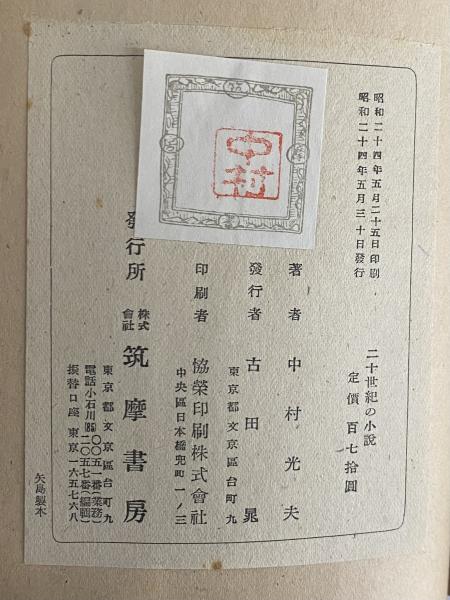 昭和二十四年五月二十五日印刷
昭和二十四年五月三十日發行
二十世紀の小説
定價 百七拾圓
著者 中村光夫
發行者 古田晁
東京都文京區台町九
印刷者 協榮印刷株式會社
中央區日本橋兜町一ノ三
發行所 株式會社 筑摩書房
東京都文京區台町九
電話小石川
〇〇五一番(業務)
二〇五七番(編輯)
振替口座 東京一六五七六八
矢島製本
中村